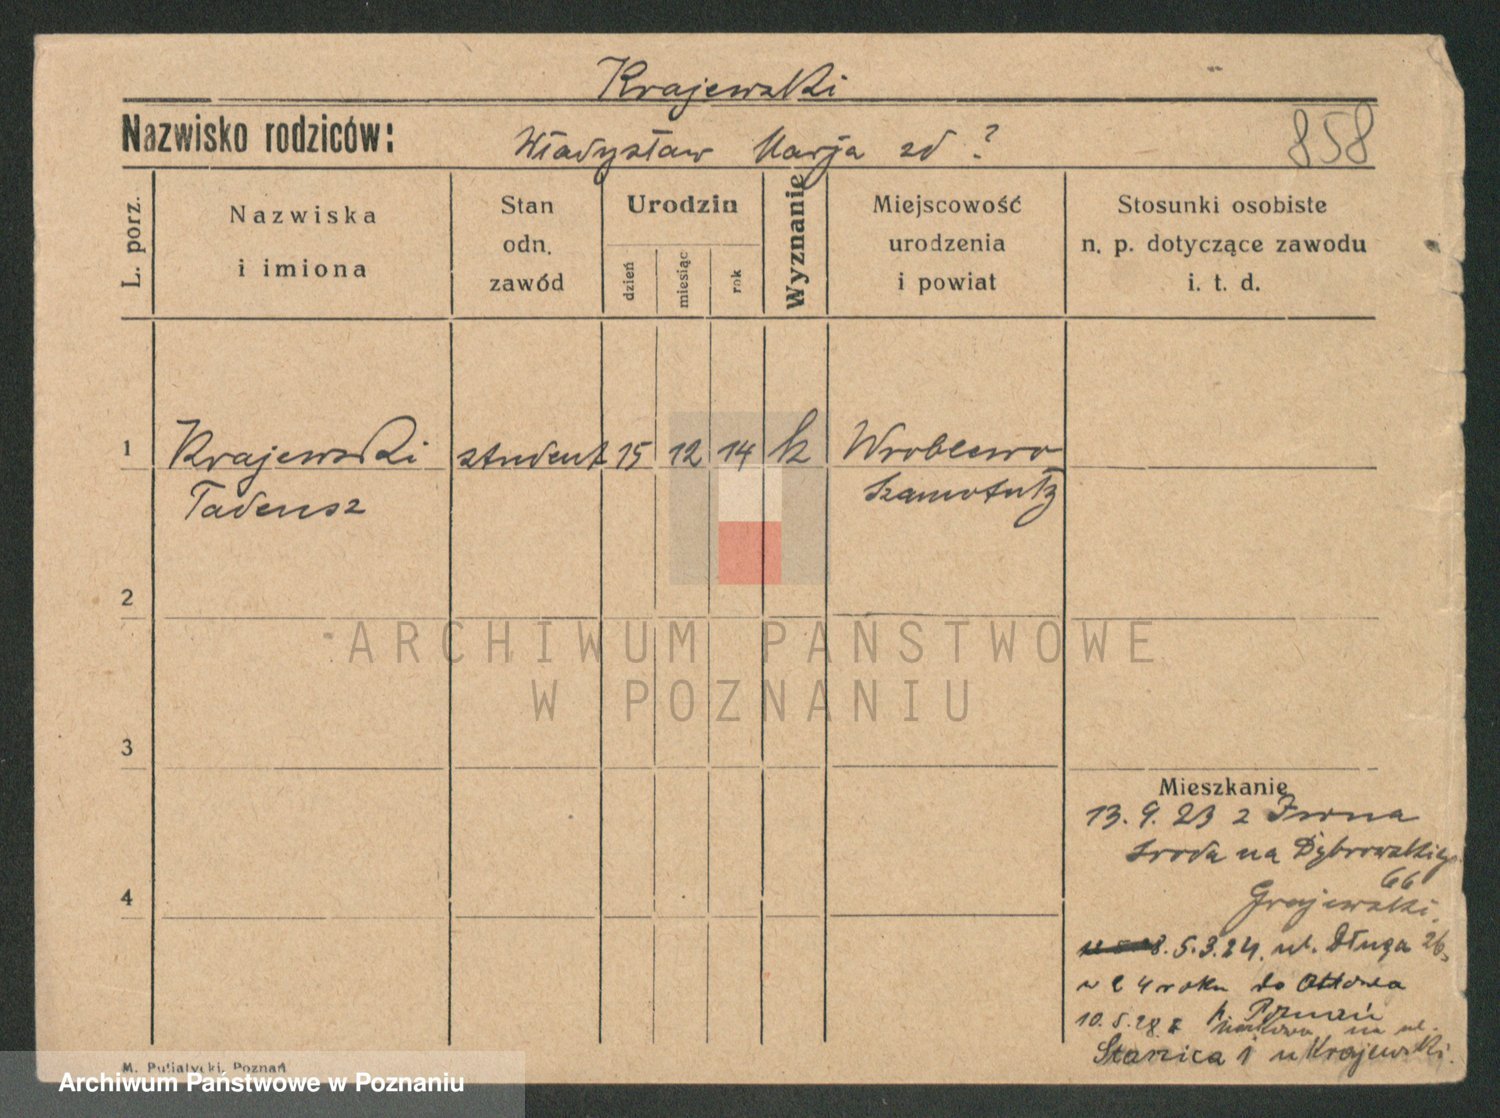 Krajewski
Nazwisko rodziców:
Władysław Marja zd ?
858
L. porz.
Nazwiska
i imiona
Stan
odn.
zawód
Urodzin
dzień
miesiąc
rok
Wyznanie
Miejscowość
urodzenia
i powiat
Stosunki osobiste
n. p. dotyczące zawodu
i. t. d.
1
Krajewski student 15 12 14 k Wroblewo
Tadeusz
Szamotuły
2
ARCHIWUM PAŃSTWOWE
W POZNANIU
3
Mieszkanie
13. 9. 23 z
Sroda na Dąbrowskiego
66
Grajewski.
8. 5.3.24. ul. Długa 26
w 24 roku do Ottowa
10.5.28 z p. Poznań
na ul.
Stanica 1 u Krajewski.
4
M. Putiatycki, Poznań
Archiwum Państwowe w Poznaniu